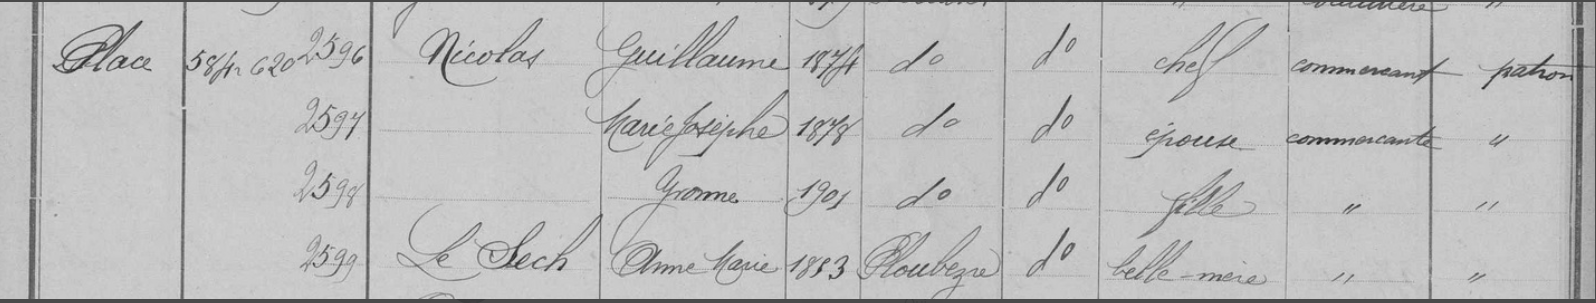 Place 584 620 2596 Nicolas Guillaume 1874 do do chef commercant patron
2597 Marie Josèphe 1878 do do épouse commercante "
2598 Yvonne 1901 do do fille " "
2599 Le Sech Anne Marie 1853 Ploubezre do belle-mère " "